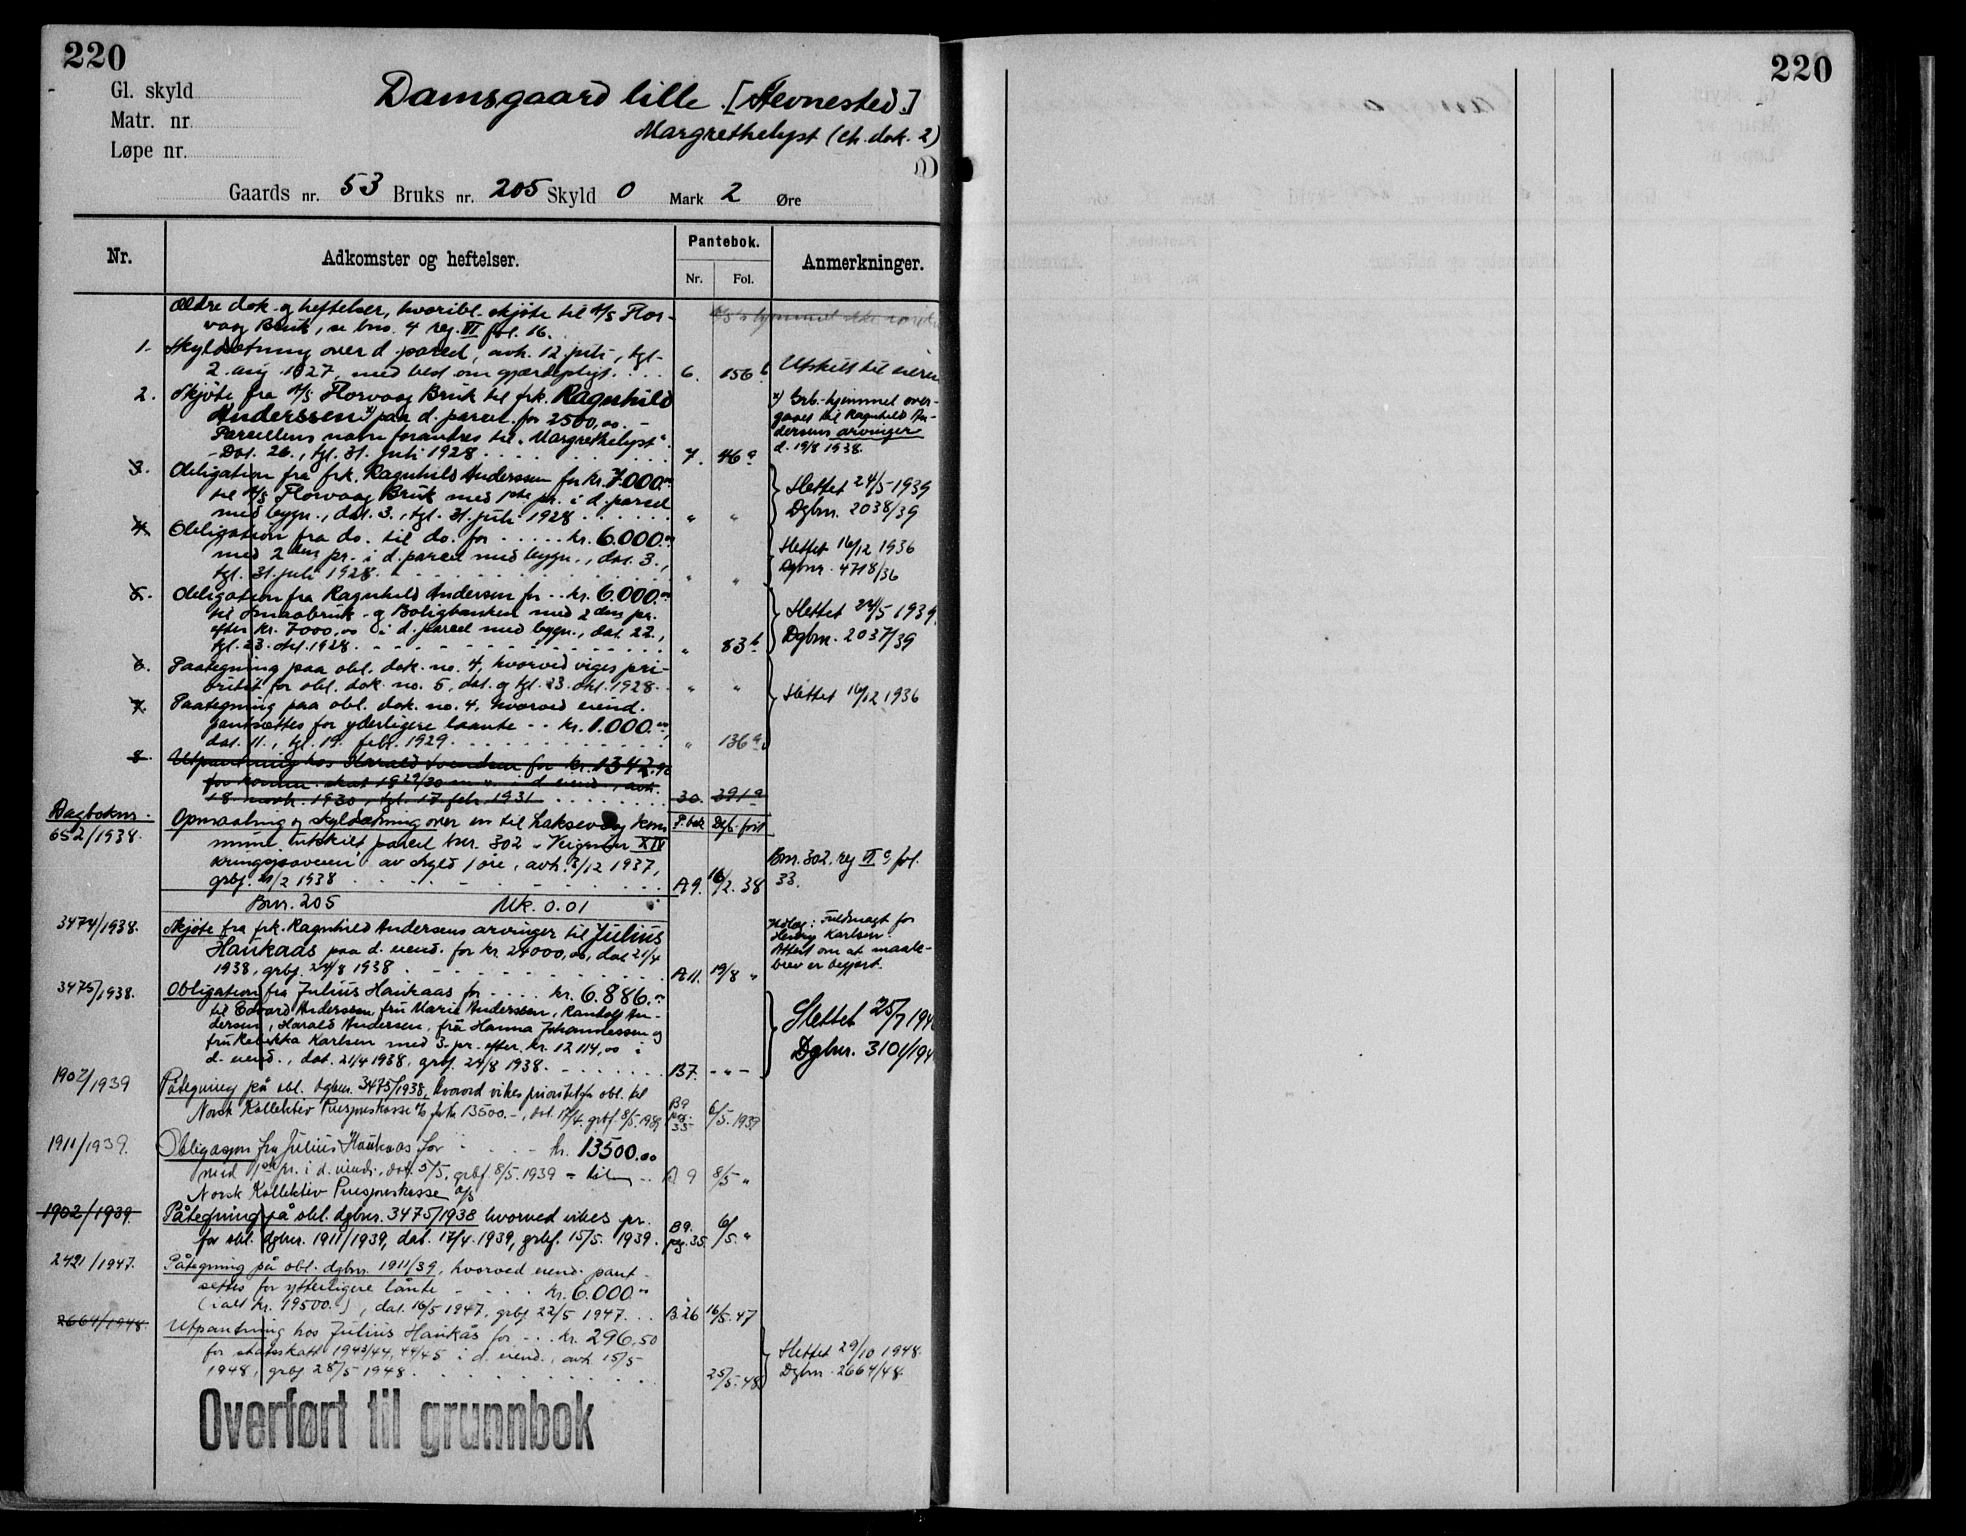 220
220
Gl. skyld
Matr. nr.
Løpe nr.
Damsgaard lille. [Stevnested.]
Margrethelyst (ch. dok. 2)
Gaards nr. 53 Bruks nr. 205 Skyld 0 Mark 2 Øre
Nr. Adkomster og heftelser. Pantebok. Anmerkninger.
Nr. Fol.
Ældre dok. og heftelser, hvoribl. skjøte til A/S Flor-
vaag Bruk, se bno. 4 reg. VI fol. 16.
1. Skyldsetning over d. parcel, avh. 12 juli, tgl.
2. aug. 1927, med best. om gjærdepligt. 6. 156 b Utskilt til eieren
2. Skjøte fra A/S Florvaag Bruk til frk. Ragnhild
Anderssen x) paa d. parcel for 2500,00. -
Parcellens navn forandres til "Margrethelyst".
- Dat. 26., tgl. 31. juli 1928 7. 46 a
x) Grb.-hjemmel over-
gaaet til Ragnhild An-
dersens arvinger
d. 19/8 1938.
3. Obligation fra frk. Ragnhild Anderssen for kr. 7.000.00
til A/S Florvaag Bruk med 1ste pr. i d. parcel
med bygn., dat. 3., tgl. 31. juli 1928 " "
Slettet 24/5-1939
Dgbnr. 2038/39
4. Obligation fra do. til do. for kr. 6.000.00
med 2den pr. i d. parcel med bygn., dat. 3.,
tgl. 31. juli 1928. " "
Slettet 16/12 1936
Dgbnr. 4718/36
5. Obligation fra Ragnhild Andersen for kr. 6.000.00
til Smaabruk- og Boligbanken med 2den pr.
efter kr. 7000,00 i d. parcel med bygn., dat. 22.,
tgl. 23. okt. 1928. " 83 b
Slettet 24/5 1939.
Dgbnr. 2037/39
6. Paategning paa obl. dok. no. 4, hvorved viges pri-
oritet for obl. dok. no. 5, dat. og tgl. 23. okt. 1928. " "
Slettet 16/12 1936
7. Paategning paa obl. dok. no. 4, hvorved eiend.
pantsættes for yderligere laante kr. 1.000.00,
dat. 11., tgl. 19. febr. 1929. " 136 a
8. Utpantning hos Harald Svendsen for kr. 1342.92
for komm. skat 1929/30 i d. eiend., avh.
18. novb. 1930, tgl. 17 feb. 1931 30. 391 a
Dagboknr. P. bok Dgb. ført
652/1938. Opmaaling og skyldsetning over en til Laksevaag kom
mune utskilt parcel bnr. 302
av skyld 1 øre, avh. 3/12 1937,
grbf. 21/2 1938 A9. 16/2. 38
Bnr. 302, reg VI c fol.
33.
Bnr. 205 Mk. 0.01
3474/1938. Skjøte fra frk. Ragnhild Andersens arvinger til Julius
Haukaas paa d. eiend. for kr 24000,00, dat 21/4
1938, grbf. 24/8 1938. A11. 19/8 "
Fuldmagt for
Henry Karlsen.
Attest om at maale-
brev er begjært.
3475/1938. Obligation fra Julius Haukaas for kr. 6.886.00
til Edvard Anderssen, fru Marie Anderssen, Randolf An-
dersen, Harald Andersen, fru Hanna Johannessen og
fru Rebekka Karlsen med 3. pr. efter kr. 12114,00 i
d. eiend., dat. 21/4 1938, grbf. 24/8 1938. B7. - " -
Slettet 25/7 194
Dgbnr. 3101/194
1902/1939 Påtegning på obl. dgbnr. 3475/1938, hvorved vikes prioritet for obl. til
Norsk Kollektiv Pensjonskasse A/S for kr 13500.-, dat. 17/4, grbf. 8/5 1939 B9 pag. 35 6/5. 1939
1911/1939. Obligasjon fra Julius Haukaas for kr. 13500.00
med 1ste pr. i d. eiend., dat. 5/5, grbf. 8/5. 1939 - til A 9 8/5 "
Norsk Kollektiv Pensjonskasse A/S
1902/1939. Påtegning på obl. dgbnr. 3475/1938 hvorved vikes pr.
for obl. dgbnr. 1911/1939, dat. 17/4. 1939, grbf. 15/5. 1939. B9. pag. 35. 6/5. "
2421/1947. Påtegning på obl. dgbnr. 1911/39, hvorved eiend. pant-
settes for ytterligere lånte kr. 6.000.00
(ialt kr. 19500.-), dat. 16/5 1947, grbf 22/5 1947. B. 26 16/5. 47
2664/1948. Utpantning hos Julius Haukås for kr. 296,50
for statsskatt 1943/44, 44/45 i d. eiend., avh. 15/5
1948, grbf 28/5 1948. 25/5. 48
Slettet 29/10 1948.
Dgbnr. 2664/48.
Overført til grunnbok